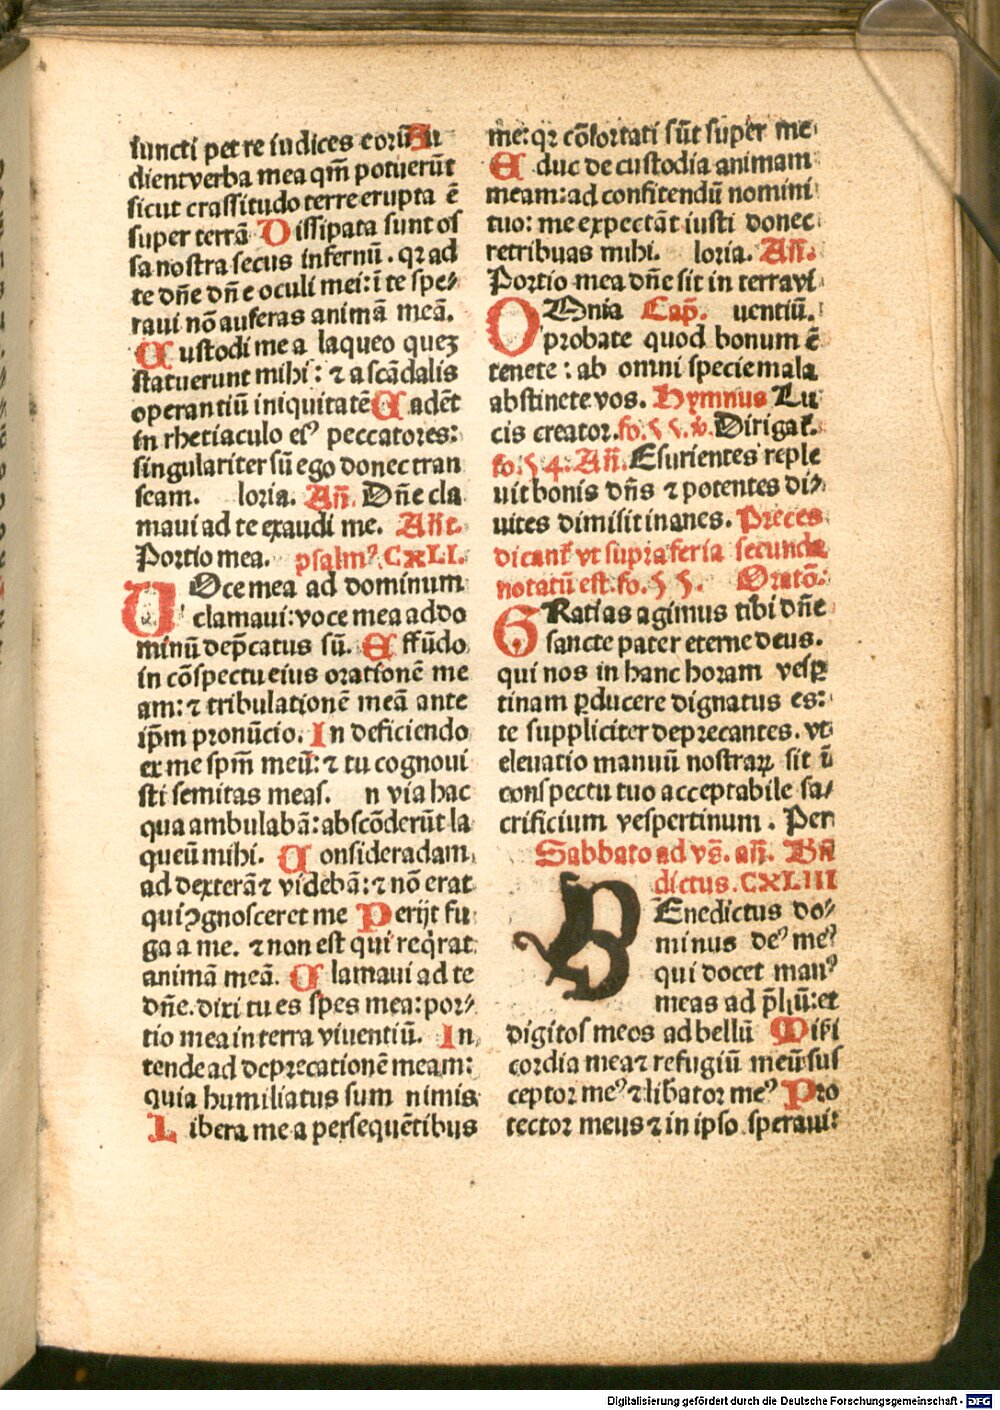 iuncti petre iudices eorũ Au
dient verba mea qm̃ potuerũt
sicut crassitudo terre erupta ē
super terrã Dissipata sunt os
sa nostra secus infernũ . qꝛ ad
te dñe dñe oculi mei: ĩ te spe⸗
raui nõ auferas animã meã.
Custodi me a laqueo quez
statuerunt mihi: ⁊ a scãdalis
operantiũ iniquitatẽ Cadẽt
in rhetiaculo eiꝰ peccatores:
singulariter sũ ego donec tran
seam. loria. Añ. Dñe cla
maui ad te exaudi me. Añt.
Portio mea. psalmꝰ. CXLI.
UOce mea ad dominum
clamaui: voce mea ad do
minũ dep̃catus sũ. Effũdo
in cõspectu eius orationẽ me
am: ⁊ tribulationẽ meã ante
ip̃m pronũcio. In deficiendo
ex me spm̃ meũ: ⁊ tu cognoui
sti semitas meas. n via hac
qua ambulabã: abscõderũt la
queũ mihi. Considera dam
ad dexterã ⁊ videbã: ⁊ nõ erat
qui ꝯgnosceret me Perijt fu
ga a me. ⁊ non est qui req̃rat
animã meã. Clamaui ad te
dñe. dixi tu es spes mea: por⸗
tio mea in terra viventiũ. In
tende ad deprecationẽ meam:
quia humiliatus sum nimis
Libera me a persequẽtibus
me: qꝛ cõfortati sũt super me
Educ de custodia animam
meam: ad confitendũ nomini
tuo: me expectãt iusti donec
retribuas mihi. loria. Añ.
Portio mea dñe sit in terra vi
OMnia Cap̃. uentiũ.
probate quod bonum ẽ
tenete: ab omni specie mala
abstinete vos. Hymnus Lu
cis creator. fo. 55. ꝟ. Dirigat̃.
fo. 54. Añ. Esurientes reple
uit bonis dñs ⁊ potentes di⸗
uites dimisit inanes. Preces
dicant̃ vt supra feria secunda
notatũ est. fo. 55. Oratõ.
GRatias agimus tibi dñe
sancte pater eterne deus.
qui nos in hanc horam vesꝑ
tinam ꝑducere dignatus es:
te suppliciter deprecantes. vt
eleuatio manuũ nostraꝝ sit ĩ
conspectu tuo acceptabile sa⸗
crificium vespertinum. Per
Sabbato ad vs̃. añ. Bñ
dictus. CXLIII
BEnedictus do⸗
minus deꝰ meꝰ
qui docet manꝰ
meas ad p̃liũ: et
digitos meos ad bellũ Miẜi
cordia mea ⁊ refugiũ meũ sus
ceptor meꝰ ⁊ libator meꝰ Pro
tector meus ⁊ in ipso speraui:
Digitalisierung gefördert durch die Deutsche Forschungsgemeinschaft - DFG